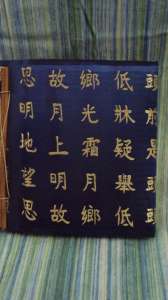 思故鄉低頭
明月光牀前
地上霜疑是
望明月舉頭
思故鄉低頭